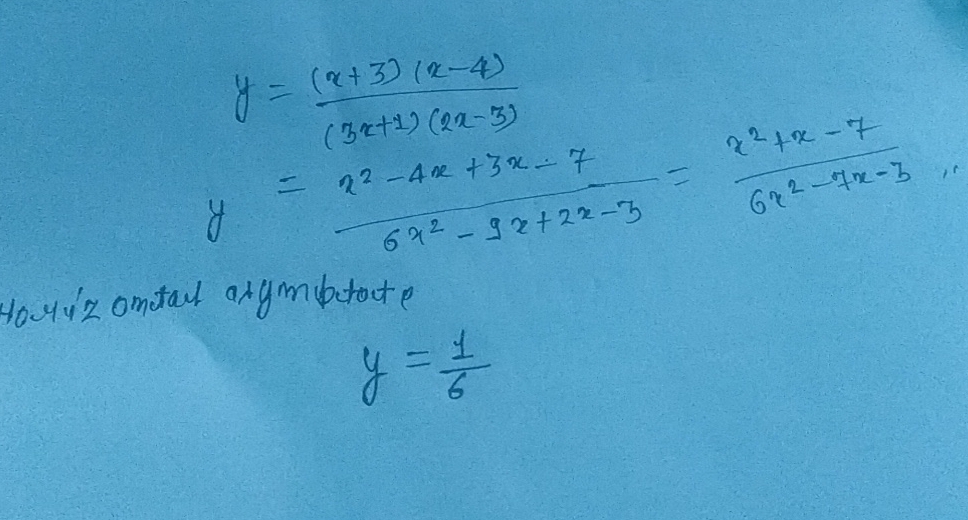 y = (x+3) (x-4) / (3x+1) (2x-3)
y = x² - 4x + 3x - 7 / 6x² - 9x + 2x - 3 = x² + x - 7 / 6x² - 7x - 3 ,,
Horizontal asymptote
y = 1/6